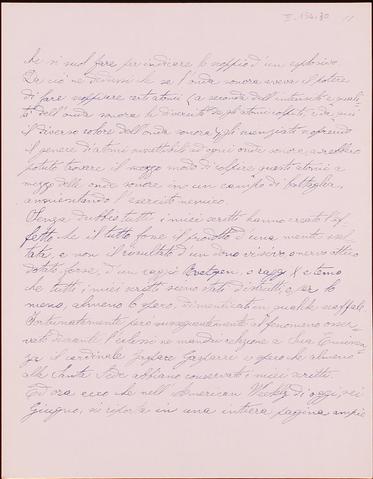 II. 154.30 11
che si suol fare per indicare lo scoppio d'un esplosivo.
Da ciò ne dedussi che se l'onda sonora aveva il potere
di fare scoppiare certi atomi (a seconda dell'intensità e quali-
tà dell'onda sonora la diversità degli atomi colpiti, e da qui
il diverso colore dell'onda sonora) gli scienziati scoprendo
il genere d'atomi suscettibili ad ogni onda sonora avrebbero
potuto trovare il modo di colpire questi atomi a
mezzo delle onde sonore in un campo di battaglia,
annientando l'esercito nemico.
Senza dubbio tutti i miei scritti hanno creato l'ef-
fetto che il tutto fosse il prodotto d'una mente esal-
tata, e non il risultato d'un dono visivo, o nervo ottico
dotato, forse, d'un raggio Roentgen, o raggi X, e temo
che tutti i miei scritti siano stati distrutti, o per lo
meno, almeno lo spero, dimenticati in qualche scaffale.
Fortunatamente però susseguentemente al fenomeno osser-
vato durante l'eclissi ne mandai relazione a Sua Eminen-
za il cardinale Gaspare Gasparri e spero che almeno
alla Santa Sede abbiano conservato i miei scritti.
Ed ora ecco che nell'American Weekly di oggi, sei
Giugno, si riporta in una intiera pagina ampie